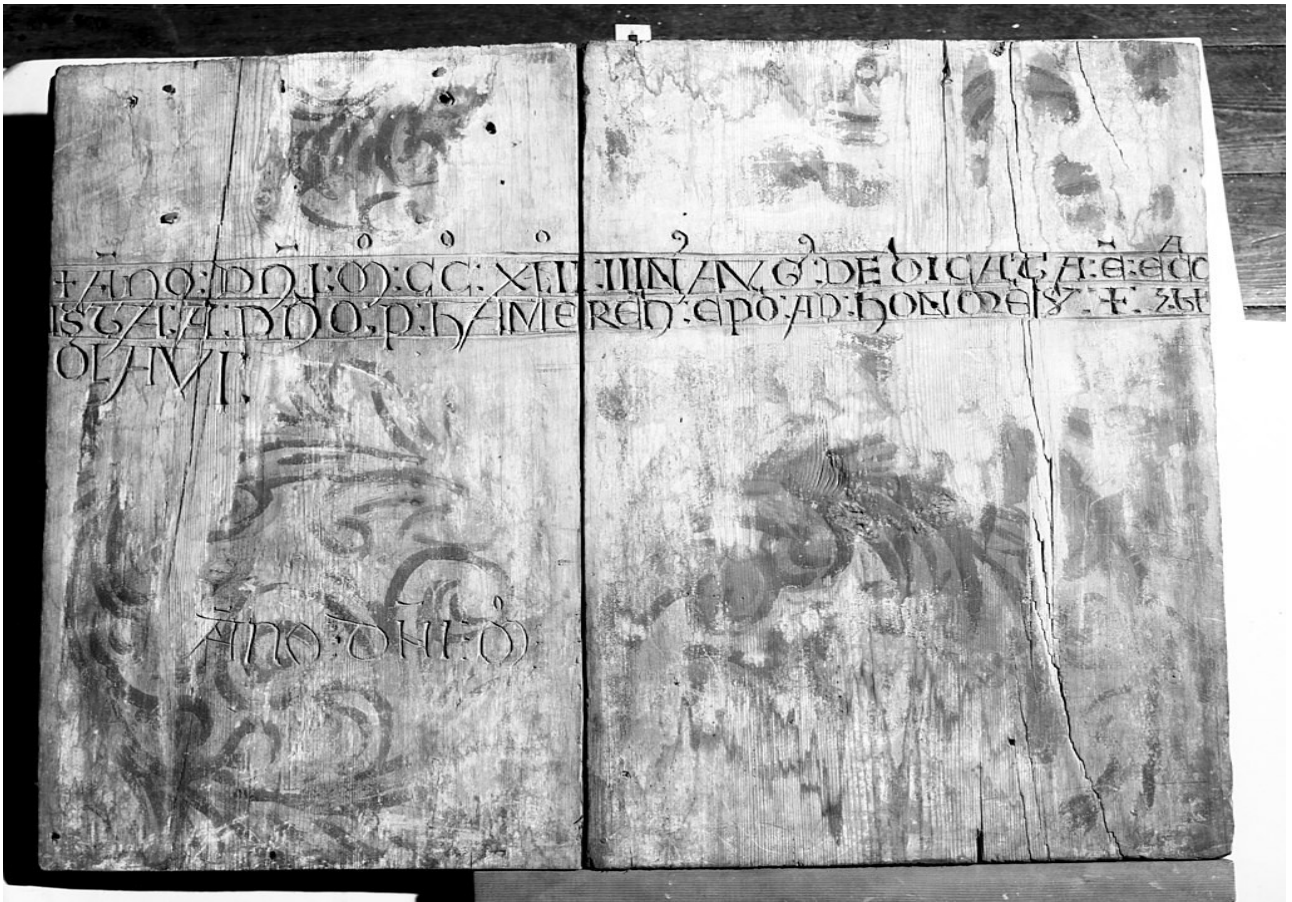 + ANO : DNI : M : CC : XLII : IIII N AVG : DEDICATA : E : ECC
ISTA : A : DNO . P . HAMEREN' : EPO : AD : HONOREM : + :
OLAVI
ANO : DNI : M